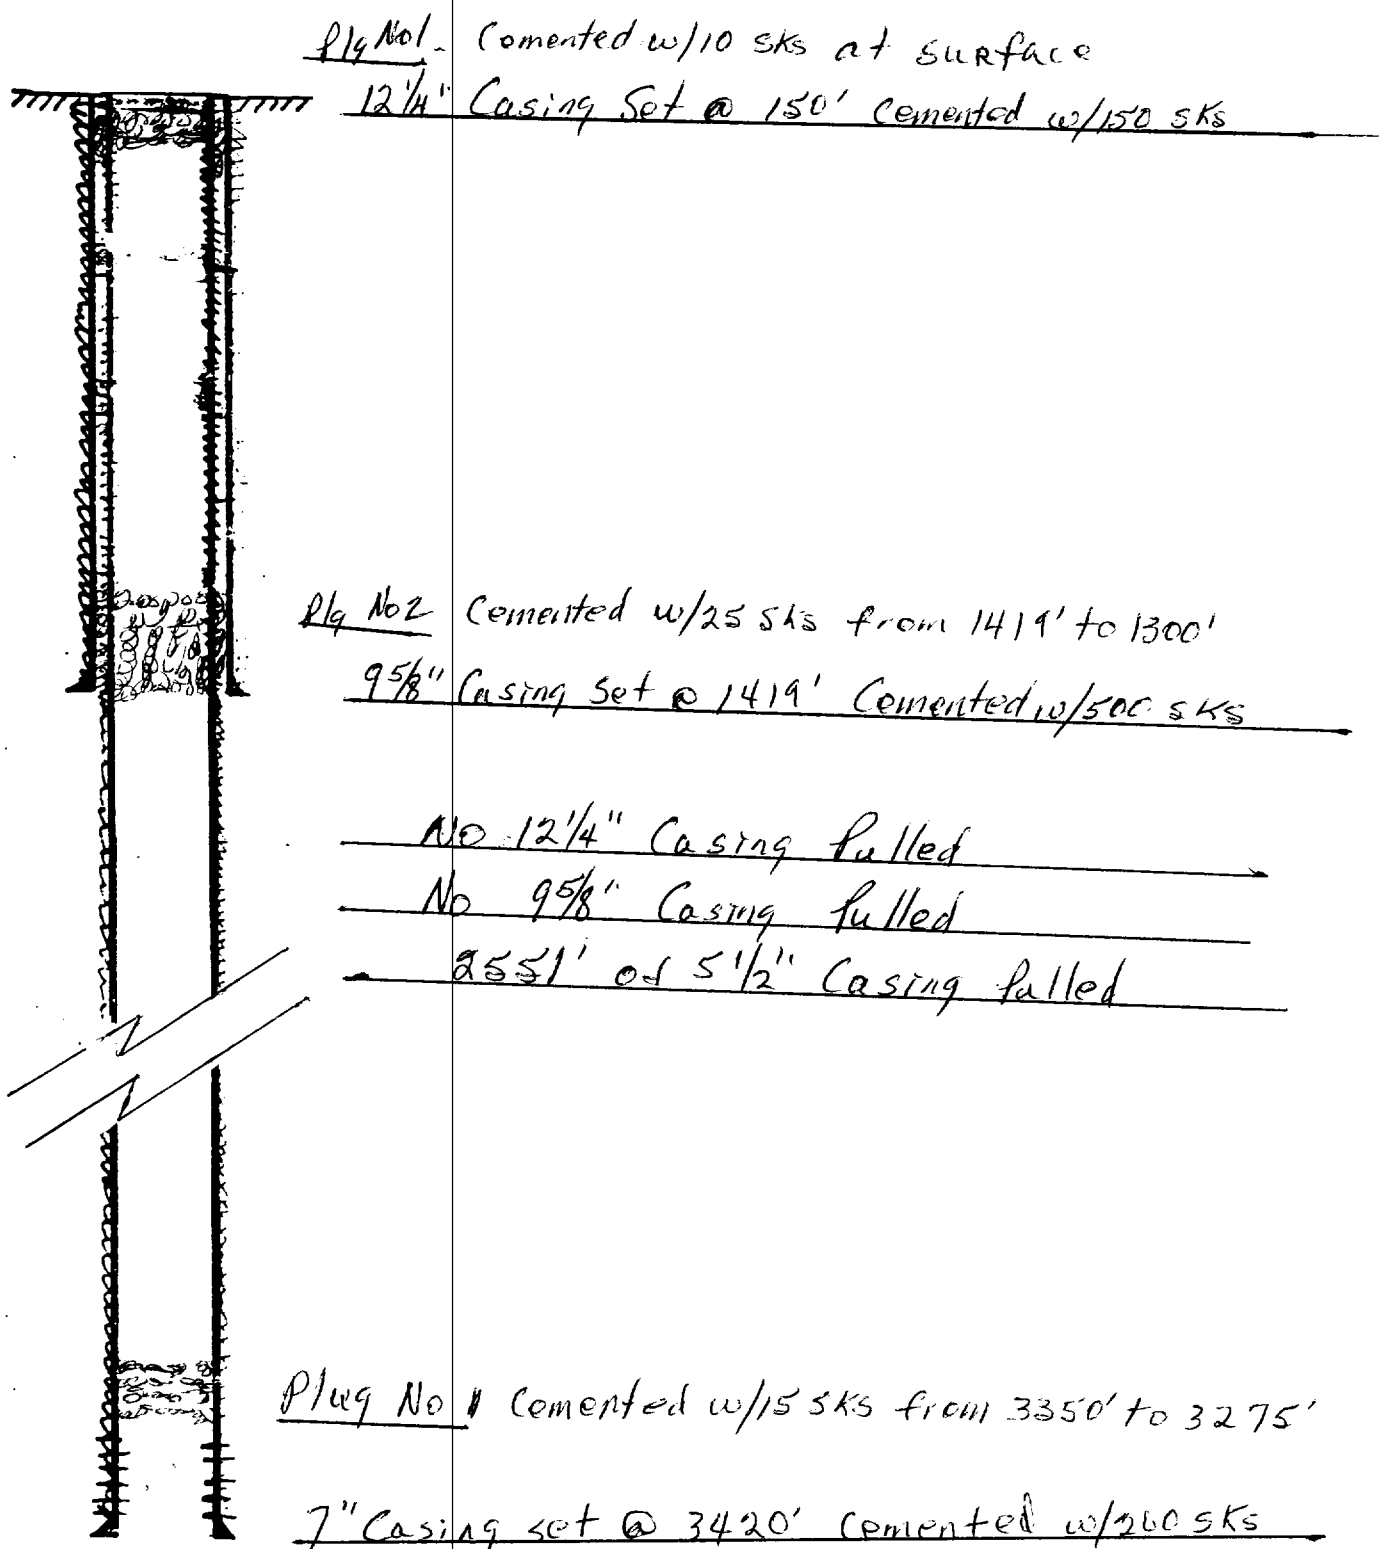 Plg No1- Cemented w/10 sks at surface
12 1/4" Casing Set @ 150' Cemented w/150 sks
Plg No2 Cemented w/25 sks from 1419' to 1300'
9 5/8" Casing Set @ 1419' Cemented w/500 sks
No 12 1/4" Casing Pulled
No 9 5/8" Casing Pulled
2551' of 5 1/2" Casing Pulled
Plug No 1 Cemented w/15 sks from 3350' to 3275'
7" Casing set @ 3420' Cemented w/260 sks